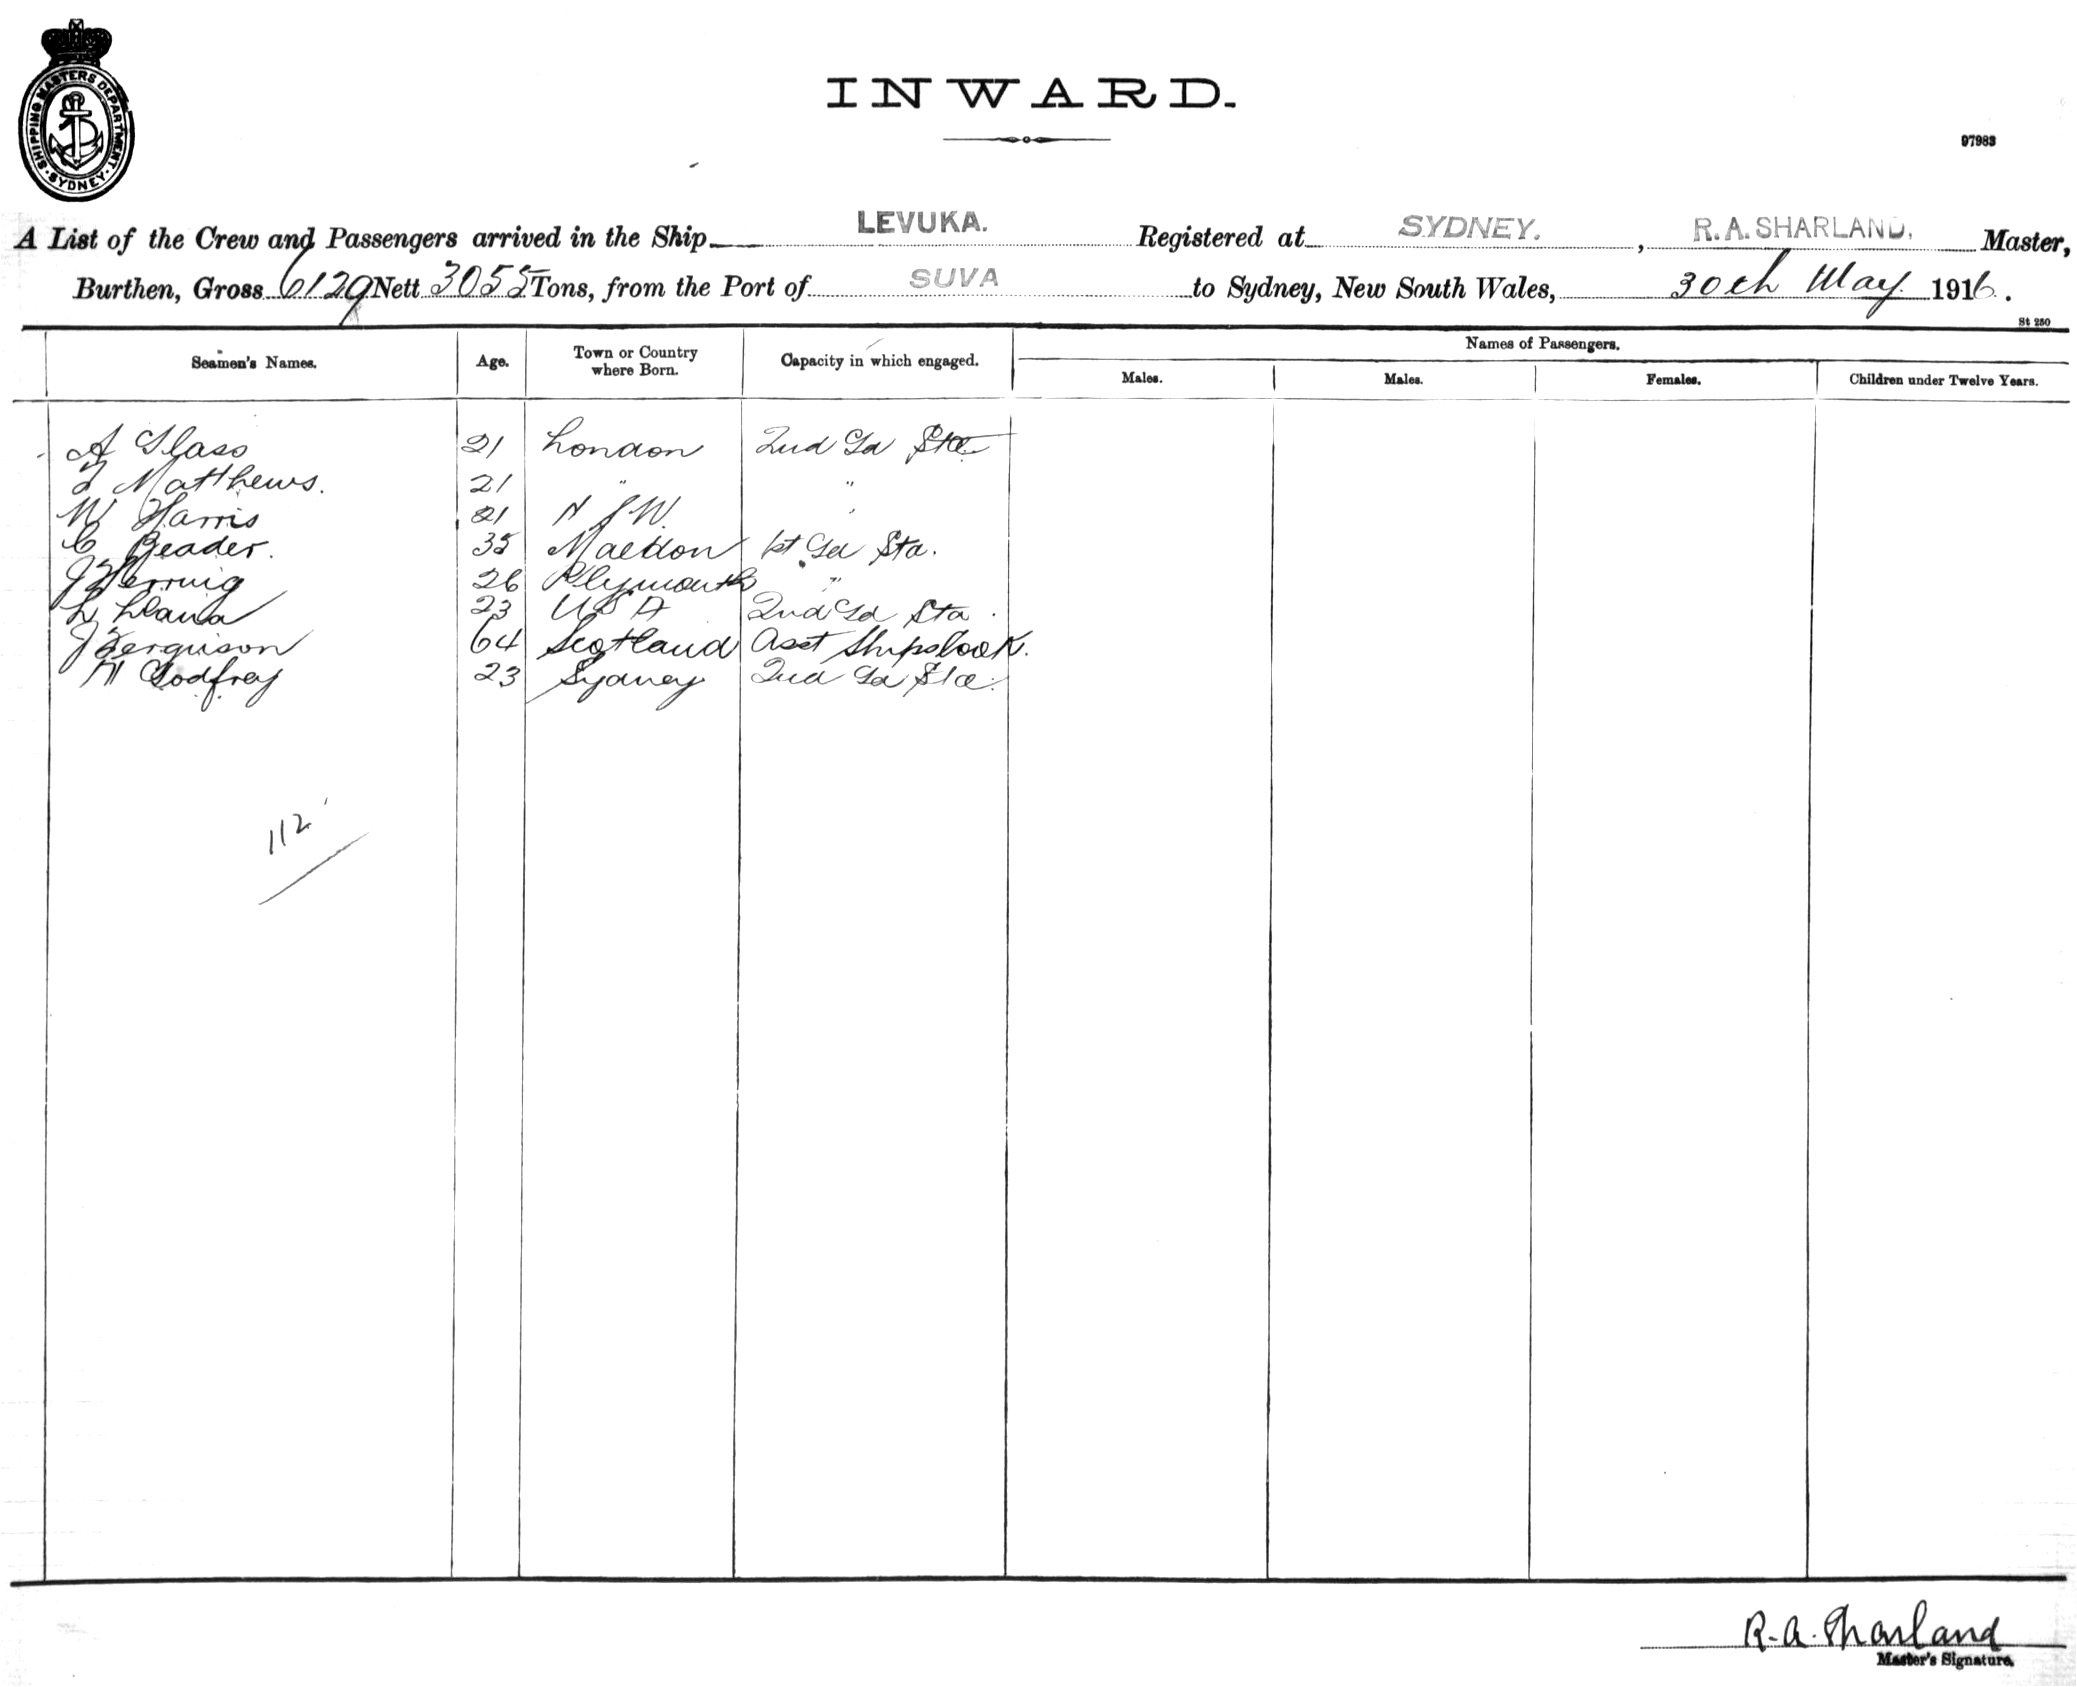 SHIPPING MASTERS DEPARTMENT. SYDNEY.
INWARD.
97983
A List of the Crew and Passengers arrived in the Ship LEVUKA. Registered at SYDNEY. , R.A. SHARLAND, Master,
Burthen, Gross 6129 Nett 3055 Tons, from the Port of SUVA to Sydney, New South Wales, 30th May 1916.
St 250
Seamen's Names. Age. Town or Country where Born. Capacity in which engaged. Names of Passengers.
Males. Males. Females. Children under Twelve Years.
A Glass 21 London 2nd Gd Sta
Matthews. 21 " "
W Harris 21 N S W. "
C Reader. 35 Maldon 1st Gd Sta.
J Herring 26 Plymouth "
L 23 USA 2nd Gd Sta
J Ferguison 64 Scotland Asst Shipscook.
H Godfrey 23 Sydney 2nd Gd Sta.
112
R. A. Sharland
Master's Signature.